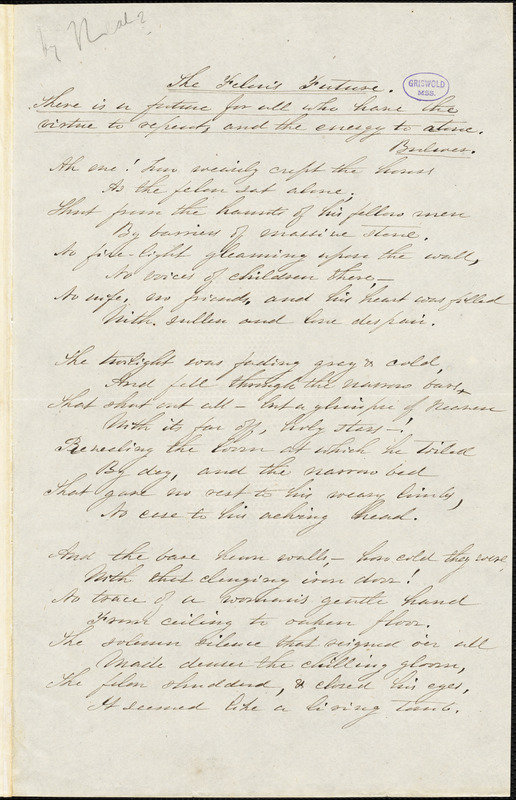 by
The Felon's Future.
GRISWOLD
MSS.
There is a future for all who have the
virtue to repent, and the energy to atone.
Bulwer.
Ah me! how wearily crept the hours
As the felon sat alone;
Shut from the haunts of his fellow men
By barriers of massive stone.
No fire-light gleaming upon the wall,
No voices of children there,—
No wife, no friend, and his heart was filled
With sullen and lone despair.
The twilight was fading grey & cold,
And fell through the narrow bars,
That shut out all — but a glimpse of Heaven
With its far off, holy stars —!
Revealing the loom at which he toiled
By day, and the narrow bed
That gave no rest to his weary limbs,
No ease to his aching head.
And the bare hewn walls, — how cold they were,
With that clanging iron door!
No trace of a woman's gentle hand
From ceiling to oaken floor.
The solemn silence that reigned o'er all
Made denser the chilling gloom,
The felon shudderd, & closed his eyes,
It seemed like a living tomb.